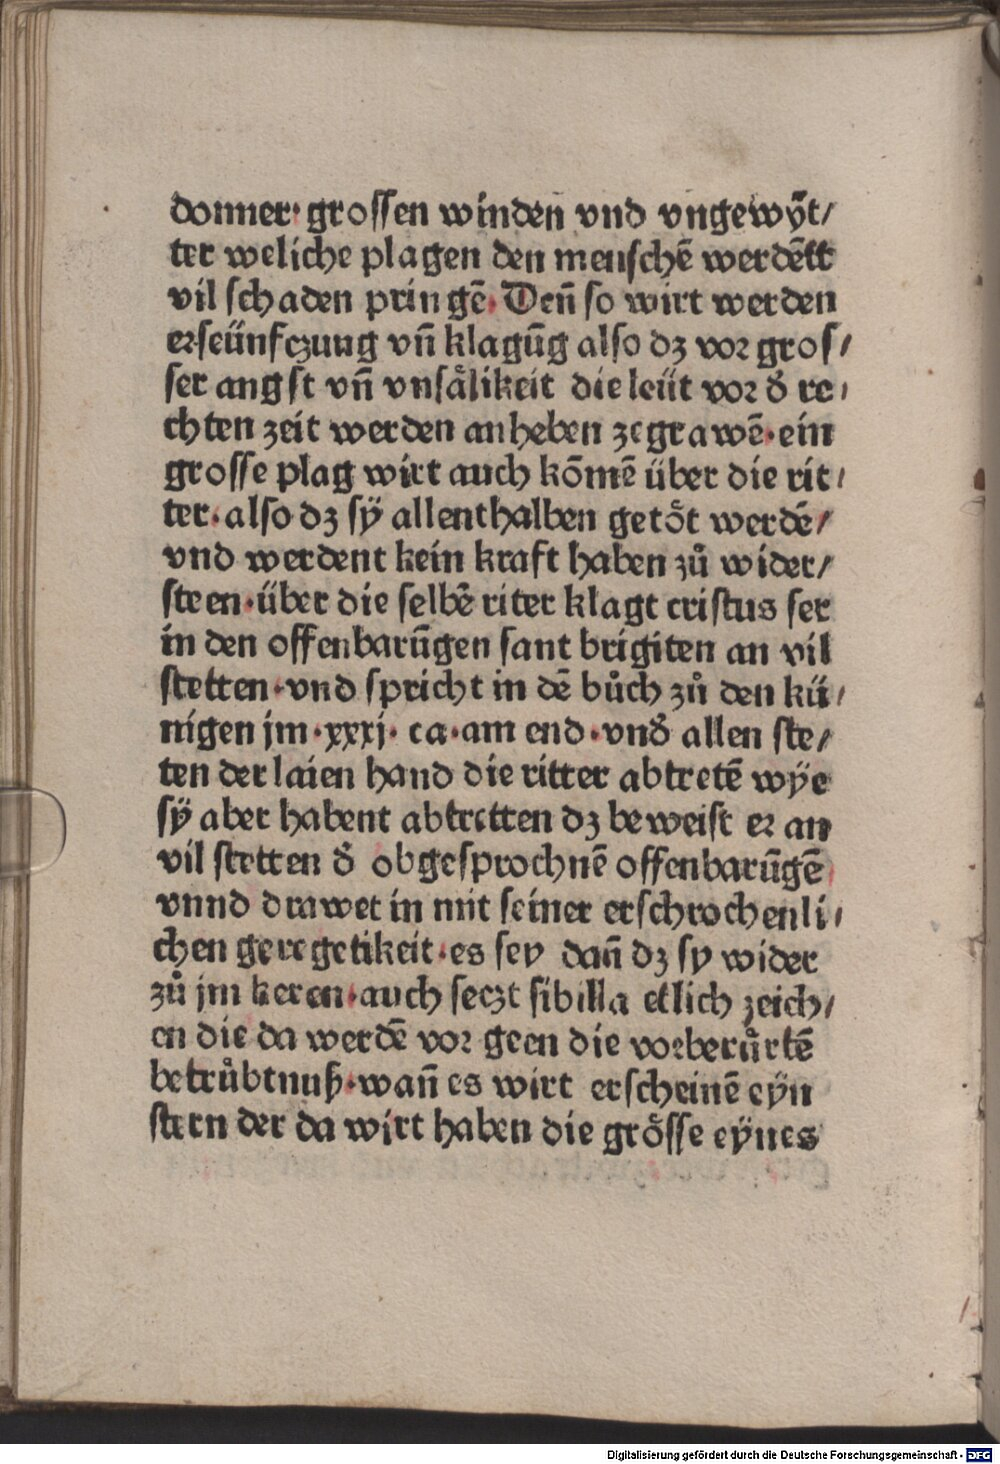 donner· grossen winden vnd vngewÿt/
ter weliche plagen den menschē werdētt
vil schaden pringē· Deñ so wirt werden
erseünfczung vñ klagūg also dz vor gros/
ser angst vñ vnsålikeit die leüt vor ð re/
chten zeit werden anheben zegrawē·ein
grosse plag wirt auch kōmē über die rit/
ter·also dz sÿ allenthalben getöt werdē/
vnd werdent kein kraft haben zů wider/
steen·über die selbē riter klagt cristus ser
in den offenbarūgen sant brigiten an vil
stetten·vnd spricht in dē bůch zů den kü/
nigen jm·xxxj· ca·am end·vnð allen ste/
ten der laien hand die ritter abtretē wÿe
sÿ aber habent abtretten dz beweist er an
vil stetten ð obgesprochnē offenbarūgē
vnnd drawet in mit seiner erschrochenli/
chen geregetikeit·es sey dañ dz sy wider
zů jm keren·auch seczt sibilla etlich zeich/
en die da werdē vor geen die vorberůrtē
betrůbtnuß·wañ es wirt erscheinē eÿn
stern der da wirt haben die grösse eÿnes
Digitalisierung gefördert durch die Deutsche Forschungsgemeinschaft - DFG